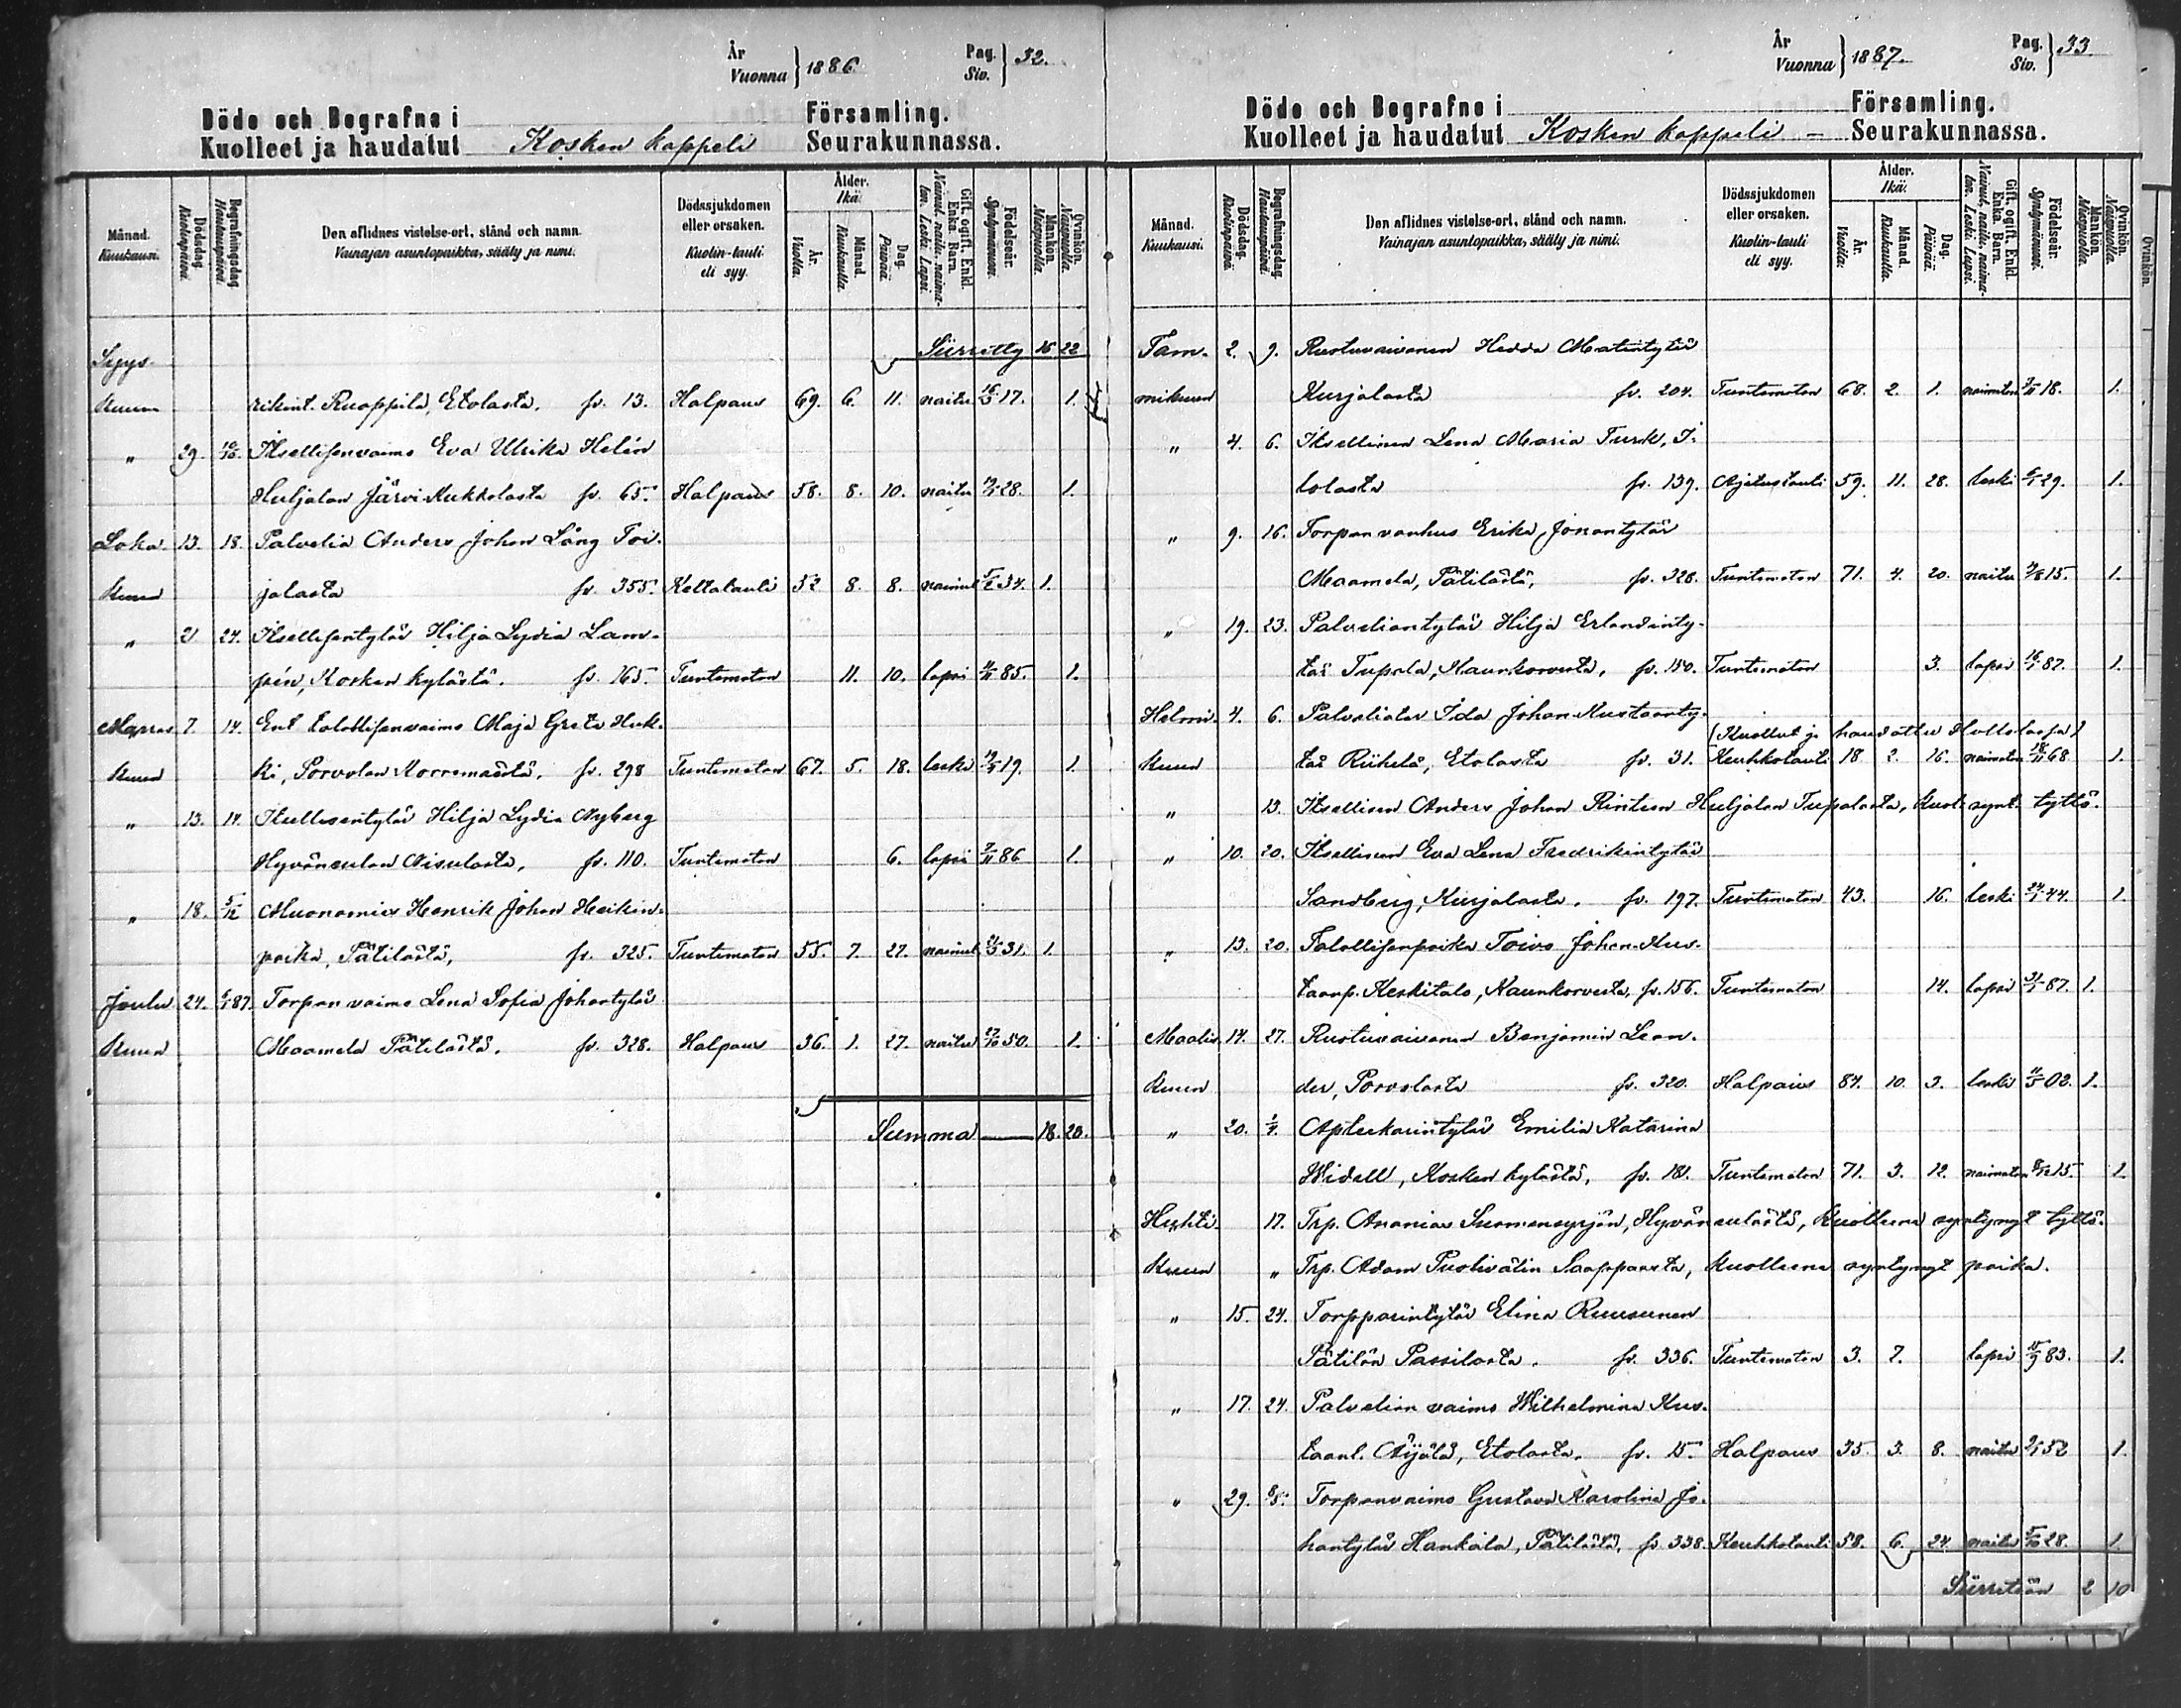 År
Vuonna } 1886.
Pag.
Siv. } 32.
Döde och Begrafne i Församling.
Kuolleet ja haudatut Kosken kappeli Seurakunnassa.
Månad. Kuukausi.
Dödsdag. Kuolinpäivä.
Begrafningsdag. Hautauspäivä.
Den aflidnes vistelse-ort, stånd och namn. Vainajan asuntopaikka, sääty ja nimi.
Dödssjukdomen eller orsaken. Kuolin-tauti eli syy.
Ålder. Ikä.
År. Vuotta.
Månad. Kuukautta.
Dag. Päivää.
Gift, ogift. Enkl. Enka. Barn. Nainut, naitu, naimaton. Leski. Lapsi.
Födelseår. Syntymävuosi.
Mankön. Miespuolia.
Qvinkön. Naispuolia.
Siirretty 16 22
Syys-
kuun rikint. Ruoppila, Etolasta. fv. 13. Halpaus 69. 6. 11. naitu 17. 1.
" 29. Itsellisenvaimo Eva Ulrika Helén
Huljalan Järvi-Kukkolasta fv. 65. Halpaus 58. 8. 10. naitu 28. 1.
Loka- 13. 18. Palvelia Anders Johan Lång Toi-
kuun jalasta fv. 355. Keltatauti 52 8. 8. nainut 34. 1.
" 21 24. Itsellisentytär Hilja Lydia Lam-
pén, Kosken kylästä. fv. 165. Tuntematon 11. 10. lapsi 85. 1.
Marras 7. 14. Ent talollisenvaimo Maja Greta Huk-
kuun ki, Porvolan Korremäästä. fv. 298 Tuntematon 67. 5. 18. leski 19. 1.
" 13. 14. Itsellisentytär Hilja Lydia Nyberg
Hyväneulan Aisulasta, fv. 110. Tuntematon 6. lapsi 7/11 86 1.
" 18. 5/12 Muonamies Henrik Johan Heikin-
poika, Pätilästä, fv. 325. Tuntematon 55. 7. 27. nainut 31. 1.
Joulu 24. 87. Torpan vaimo Lena Sofia Johantytär
kuun Maamela Pätilästä. fv. 328. Halpaus 36. 1. 27. naitu 27/10 50. 1.
Summa 18. 20.
År
Vuonna } 1887.
Pag.
Siv. } 33
Döde och Begrafne i Församling.
Kuolleet ja haudatut Kosken kappeli - Seurakunnassa.
Månad. Kuukausi.
Dödsdag. Kuolinpäivä.
Begrafningsdag. Hautauspäivä.
Den aflidnes vistelse-ort, stånd och namn. Vainajan asuntopaikka, sääty ja nimi.
Dödssjukdomen eller orsaken. Kuolin-tauti eli syy.
Ålder. Ikä.
År. Vuotta.
Månad. Kuukautta.
Dag. Päivää.
Gift, ogift. Enkl. Enka. Barn. Nainut, naitu, naimaton. Leski. Lapsi.
Födelseår. Syntymävuosi.
Mankön. Miespuolia.
Qvinkön. Naispuolia.
Qvinkön.
Tam- 2. 9. Ruotuvaivanen Hedda Matintytär
mikuun Kurjalasta fv. 204. Tuntematon 68. 2. 1. naimaton 18. 1.
" 4. 6. Itsellinen Lena Maria Turk, I-
tolasta fv. 139. Ajetustauti 59. 11. 28. leski 29. 1.
" 9. 16. Torpan vanhus Erika Jonantytär
Maamela, Pätilästä, fv. 328. Tuntematon 71. 4. 20. naitu 15. 1.
" 19. 23. Palveliantytär Hilja Erlandinty-
tär Tupala, Kaunkorvesta. fv. 150. Tuntematon 3. lapsi 16/1 87. 1.
Helmi- 4. 6. Palveliatar Ida Johan Kustaanty-
(Kuollut ja haudattu Hollolassa)
kuun tär Riihelä, Etolasta fv. 31. Keuhkotauti 18. 2. 16. naimaton 18/11 68 1.
" 13. Itsellisen Anders Johan Rinteen Huljalan Tupalasta, kuol. synt. tyttö.
" 10. 20. Itsellinen Eva Lena Fredrikintytär
Sandberg, Kurjalasta. fv. 197. Tuntematon 43. 16. leski 24/1 44. 1.
" 13. 20. Talollisenpoika Toivo Johan Kus-
taanp. Keskitalo, Kaunkorvesta, fv. 156. Tuntematon 14. lapsi 87. 1.
Maalis 14. 27. Ruotuvaivanen Benjamin Lean-
kuun der, Porvolasta fv. 320. Halpaus 84. 10. 3. leski 02. 1.
" 20. Aptekarintytär Emilia Katarina
Widell, Kosken kylästä, fv. 181. Tuntematon 71. 3. 12. naimaton 15. 1.
Huhti- 17. Trp. Ananias Suomensyrjän, Hyväneulästä, kuolleena syntynyt tyttö.
kuun " Trp. Adam Puolivälin Saappaasta, kuolleena syntynyt poika.
" 15. 24. Torpparintytär Elina Ruusunen
Pätilän Passilasta. fv. 336. Tuntematon 3. 7. lapsi 15/9 83. 1.
" 17. 24. Palvelian vaimo Wilhelmina Kus-
taant. Äijälä, Etolasta. fv. 15. Halpaus 35. 3. 8. naitu 52 1.
" 29. 8/5. Torpanvaimo Gustava Karolina Jo-
hantytär Hankala, Pätilästä, fv. 338. Keuhkotauti 58. 6. 24. naitu 28. 1.
Siirretään 2 10